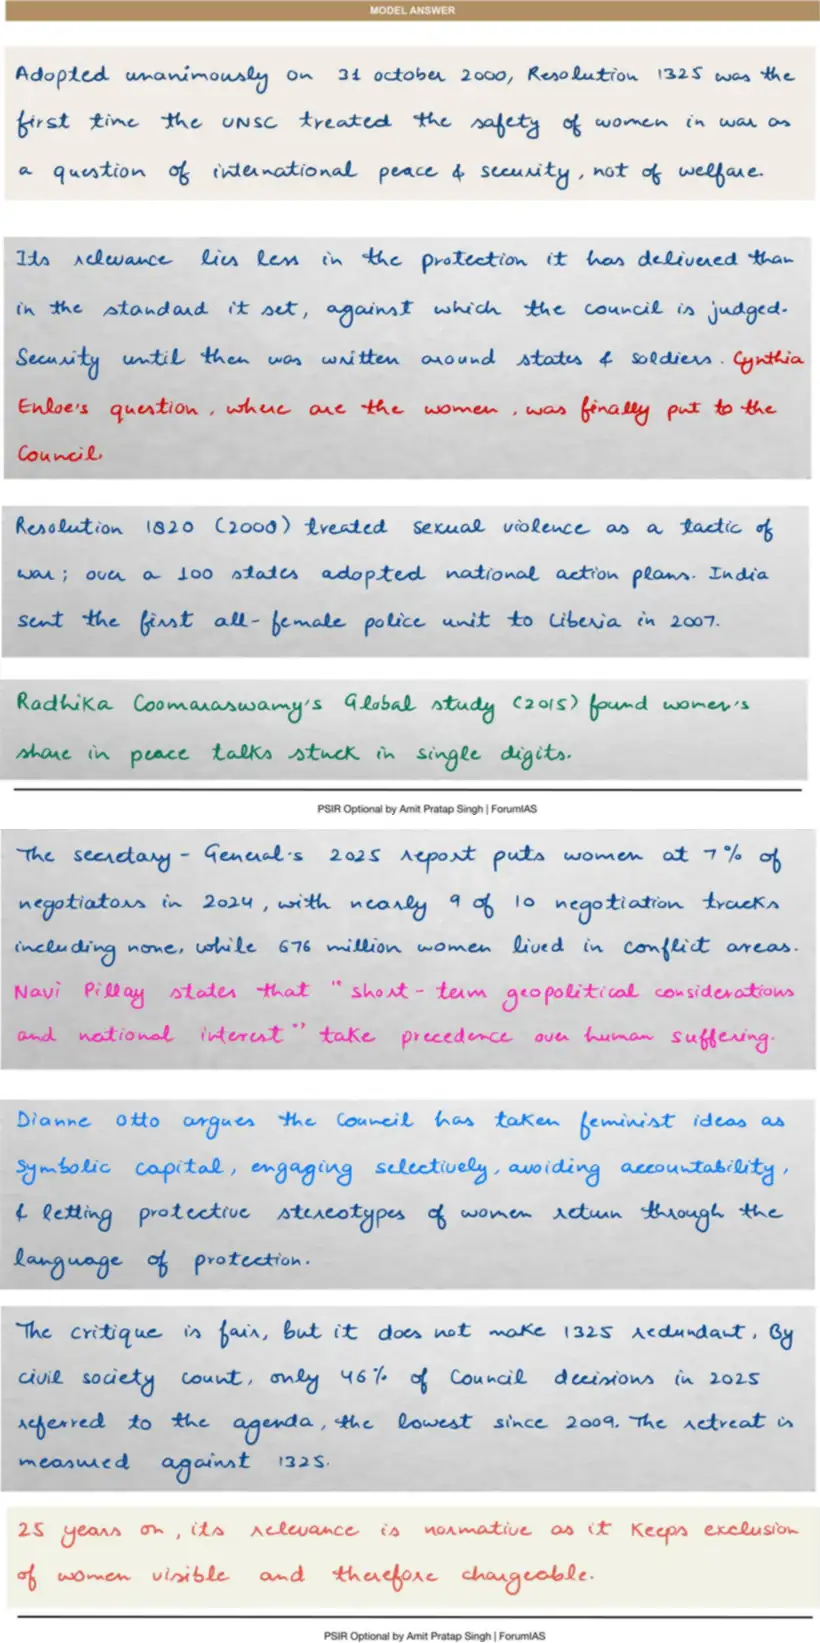 MODEL ANSWER
Adopted unanimously on 31 october 2000, Resolution 1325 was the
first time the UNSC treated the safety of women in war as
a question of international peace & security, not of welfare.
Its relevance lies less in the protection it has delivered than
in the standard it set, against which the council is judged.
Security until then was written around states & soldiers. Cynthia
Enloe's question, where are the women, was finally put to the
Council.
Resolution 1820 (2008) treated sexual violence as a tactic of
war; over a 100 states adopted national action plans. India
sent the first all-female police unit to Liberia in 2007.
Radhika Coomaraswamy's Global study (2015) found women's
share in peace talks stuck in single digits.
PSIR Optional by Amit Pratap Singh | ForumIAS
The secretary-General's 2025 report puts women at 7% of
negotiators in 2024, with nearly 9 of 10 negotiation tracks
including none, while 676 million women lived in conflict areas.
Navi Pillay states that "short-term geopolitical considerations
and national interest" take precedence over human suffering.
Dianne Otto argues the Council has taken feminist ideas as
symbolic capital, engaging selectively, avoiding accountability,
& letting protective stereotypes of women return through the
language of protection.
The critique is fair, but it does not make 1325 redundant. By
civil society count, only 46% of Council decisions in 2025
referred to the agenda, the lowest since 2009. The retreat is
measured against 1325.
25 years on, its relevance is normative as it keeps exclusion
of women visible and therefore chargeable.
PSIR Optional by Amit Pratap Singh | ForumIAS